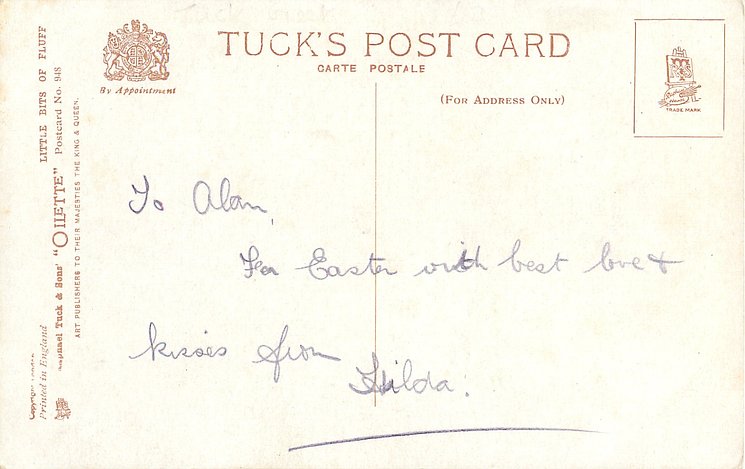 TUCK'S POST CARD
CARTE POSTALE
By Appointment
(FOR ADDRESS ONLY)
TRADE MARK
LITTLE BITS OF FLUFF
Raphael Tuck & Sons' "OILETTE" Postcard No. 948
ART PUBLISHERS TO THEIR MAJESTIES THE KING & QUEEN.
Printed in England
To Alan,
For Easter with best love &
kisses from
Hilda.